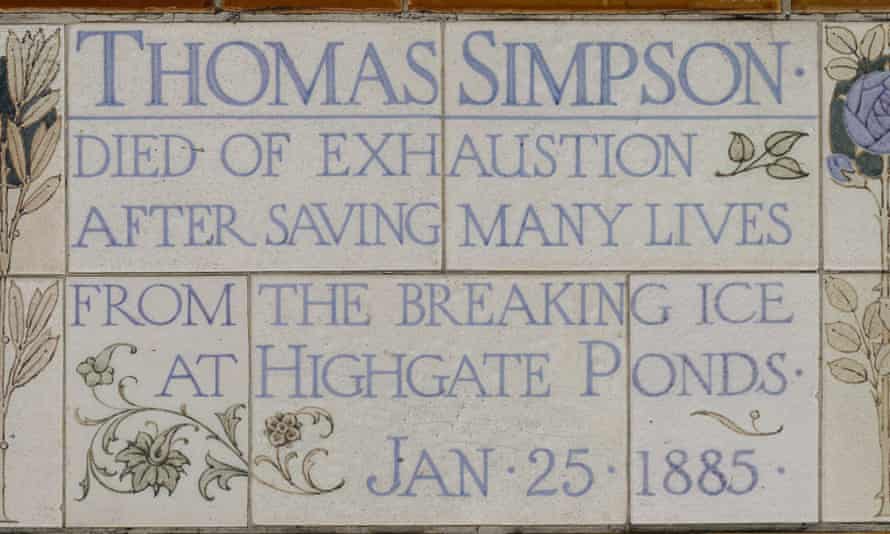 THOMAS SIMPSON ·
DIED OF EXHAUSTION
AFTER SAVING MANY LIVES
FROM THE BREAKING ICE
AT HIGHGATE PONDS ·
JAN · 25 · 1885 ·